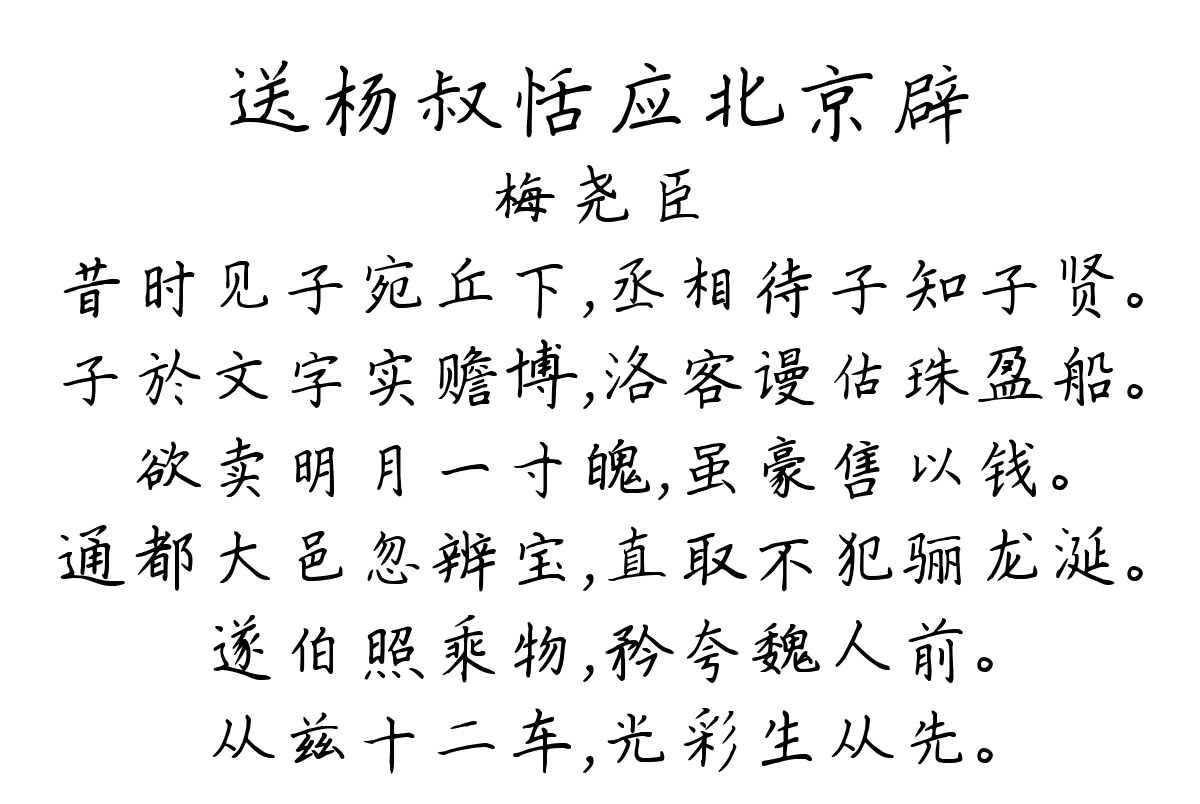 送杨叔恬应北京辟
梅尧臣
昔时见子宛丘下,丞相待子知子贤。
子於文字实赡博,洛客谩估珠盈船。
欲卖明月一寸魄,虽豪售以钱。
通都大邑忽辨宝,直取不犯骊龙涎。
遂伯照乘物,矜夸魏人前。
从兹十二车,光彩生从先。